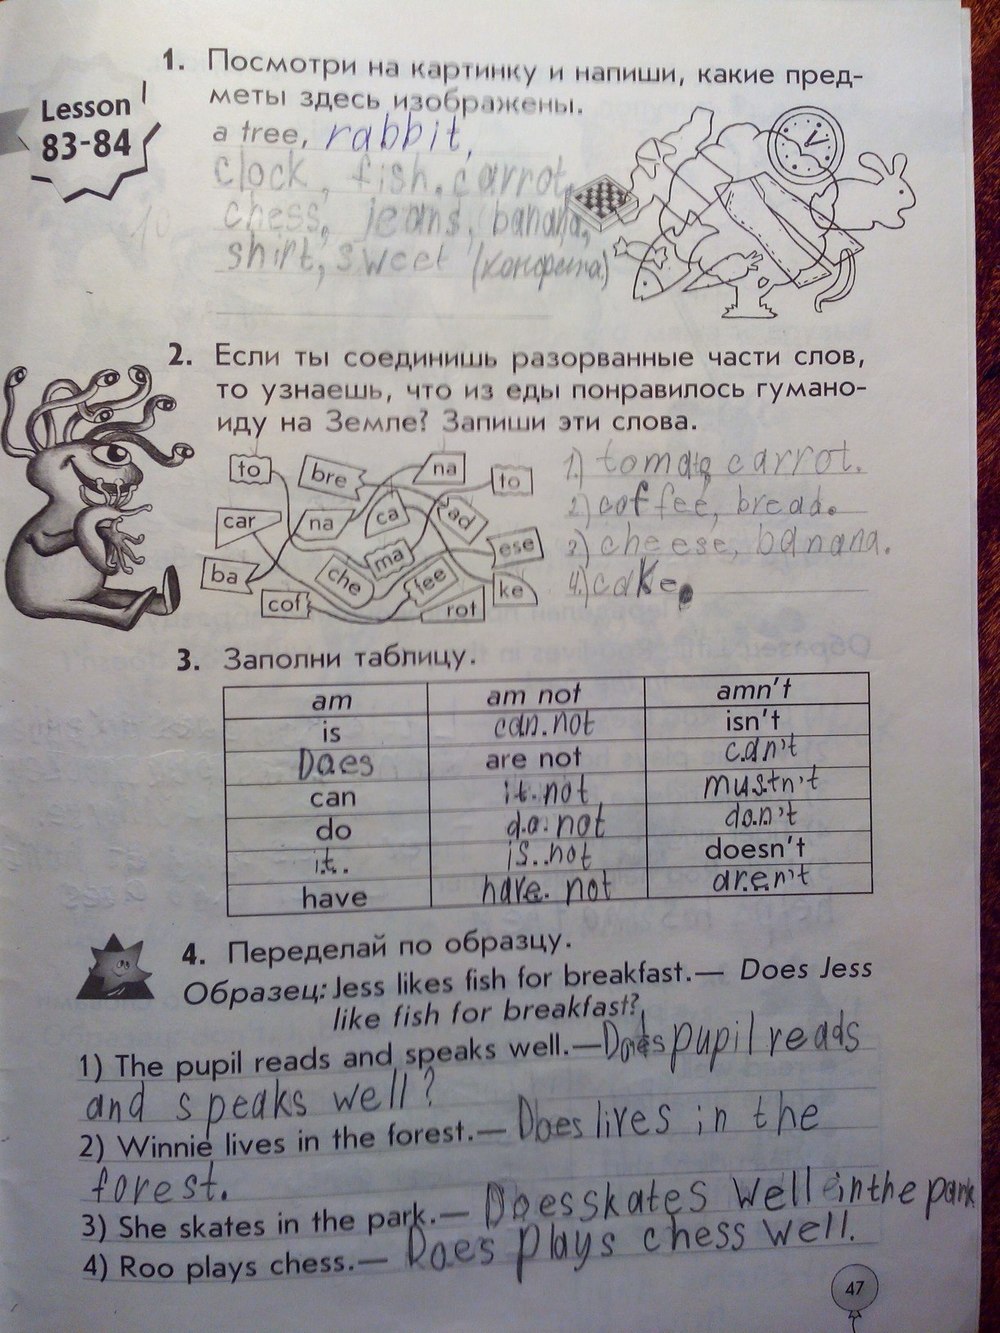 Lesson
83-84
1. Посмотри на картинку и напиши, какие пред-
меты здесь изображены.
a tree, rabbit,
clock, fish, carrot,
chess, jeans, banana,
shirt, sweet (конфета)
2. Если ты соединишь разорванные части слов,
то узнаешь, что из еды понравилось гумано-
иду на Земле? Запиши эти слова.
to bre na to
car na ca ad
ba che ma fee ese
cof rot ke
1) tomato, carrot.
2) coffee, bread.
3) cheese, banana.
4) cake.
3. Заполни таблицу.
am am not amn't
is can not isn't
Does are not can't
can it not mustn't
do do not don't
it is not doesn't
have have not aren't
4. Переделай по образцу.
Образец: Jess likes fish for breakfast.— Does Jess
like fish for breakfast?
1) The pupil reads and speaks well.—Does pupil reads
and speaks well?
2) Winnie lives in the forest.— Does lives in the
forest.
3) She skates in the park.— Does skates well in the park
4) Roo plays chess.— Does plays chess well.
47